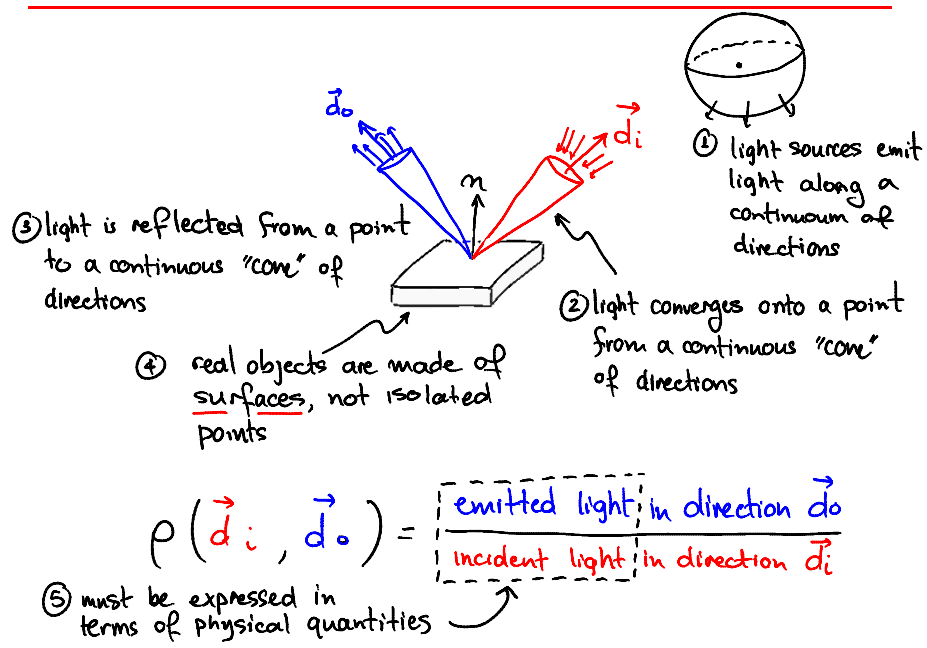 d⃗o
d⃗i
n
① light sources emit
light along a
continuoum of
directions
③ light is reflected from a point
to a continuous "cone" of
directions
② light converges onto a point
from a continuous "cone"
of directions
④ real objects are made of
surfaces, not isolated
points
ρ(d⃗i, d⃗o) =
emitted light in direction d⃗o
incident light in direction d⃗i
⑤ must be expressed in
terms of physical quantities